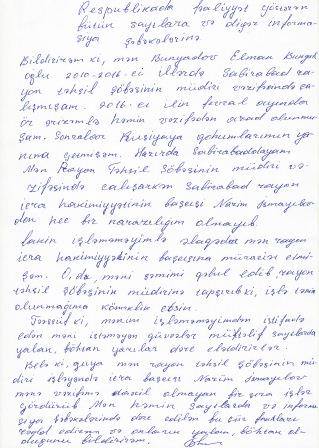 Respublikada fəaliyyət göstərən
bütün saytlara və digər informa-
siya şəbəkələrinə
Bildirirəm ki, mən Bünyadov Elman Bünyad
oğlu 2010-2016-ci illərdə Sabirabad ra-
yon təhsil şöbəsinin müdiri vəzifəsində ça-
lışmışam. 2016-ci ilin fevral ayında
öz ərizəmlə həmin vəzifədən azad olunmu-
şam. Sonralar Rusiyaya qohumlarımın ya-
nına getmişəm. Hazırda Sabirabaddayam.
Mən Rayon Təhsil Şöbəsinin müdiri və-
zifəsində çalışarkən Sabirabad rayon
icra hakimiyyətinin başçısı Nazim İsmayılov-
dan heç bir narazılığım olmayıb.
Lakin işləməməyimlə əlaqədar mən rayon
icra hakimiyyətinin başçısına müraciət etmi-
şəm. O, da, məni səmimi qəbul edib, rayon
təhsil şöbəsinin müdirinə tapşırıb ki, işlə təmin
olunmağıma köməklik etsin.
Təəssüf ki, mənim işləməməyimdən istifadə
edən məni istəməyən qüvvələr müxtəlif saytlarda
yalan, böhtan yazılar dərc etdirirlər.
Belə ki, guya mən rayon təhsil şöbəsinin mü-
diri işləyəndə icra başçısı Nazim İsmayılov
mənə vəzifəmə daxil olmayan bir sıra işlər
gördürüb. Mən həmin saytlarda və informa-
siya şəbəkələrində dərc edilən bu cür faktları
təkzib edirəm və onların yalan, böhtan ol-
duğunu bildirirəm.